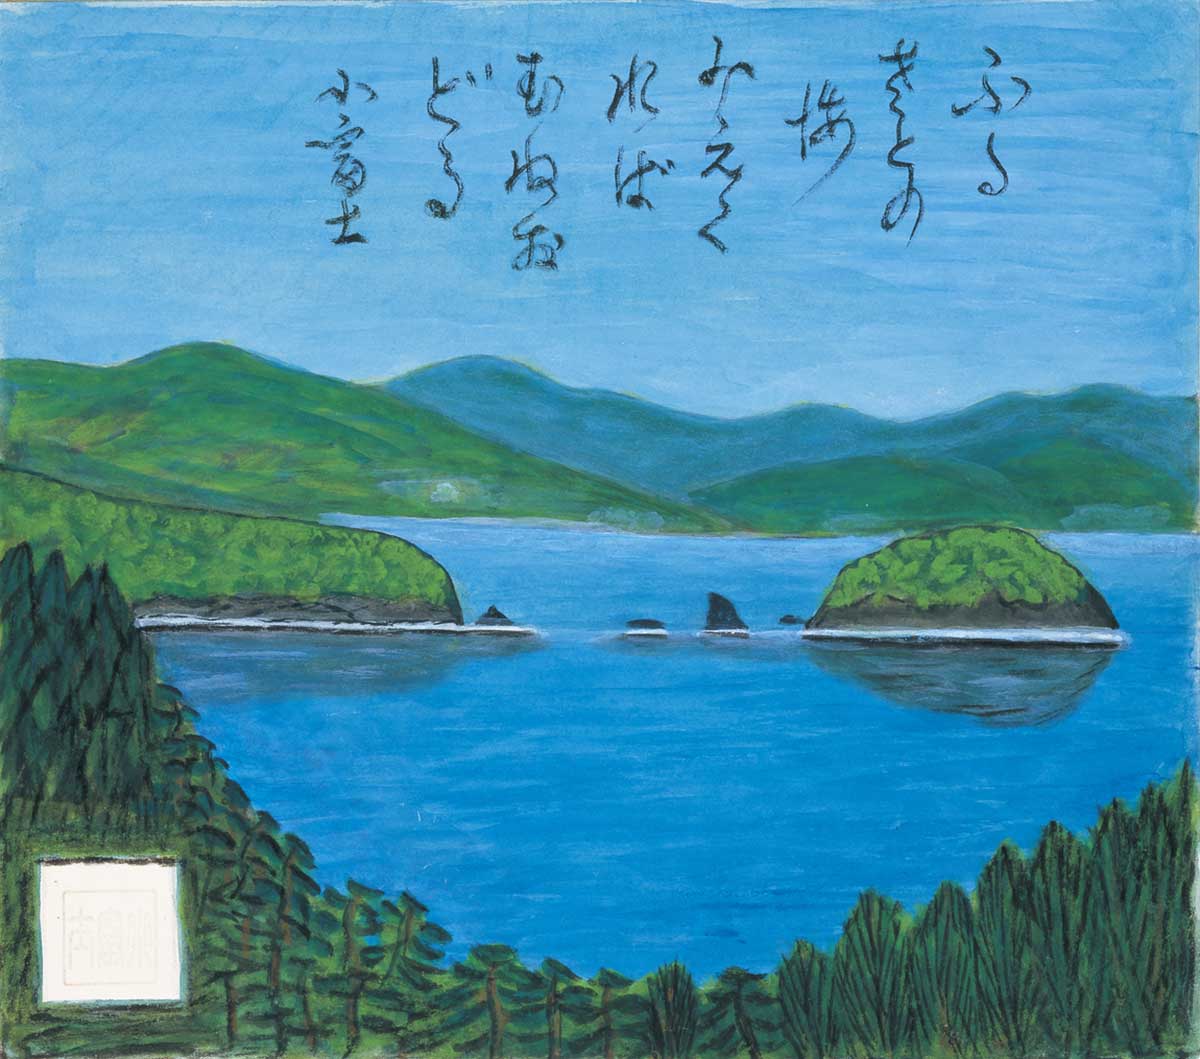 ふる
さとの
海
みえく
れば
むねお
どる
小富士